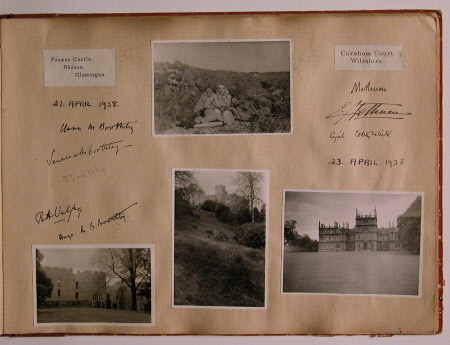 Fonmon Castle,
Rhoose,
Glamorgan.
21. APRIL 1938.
Clara M Boothby
Boothby
Boothby
Hugo M. B. Boothby.
Corsham Court,
Wiltshire.
Methuen
Methuen
23. APRIL 1938